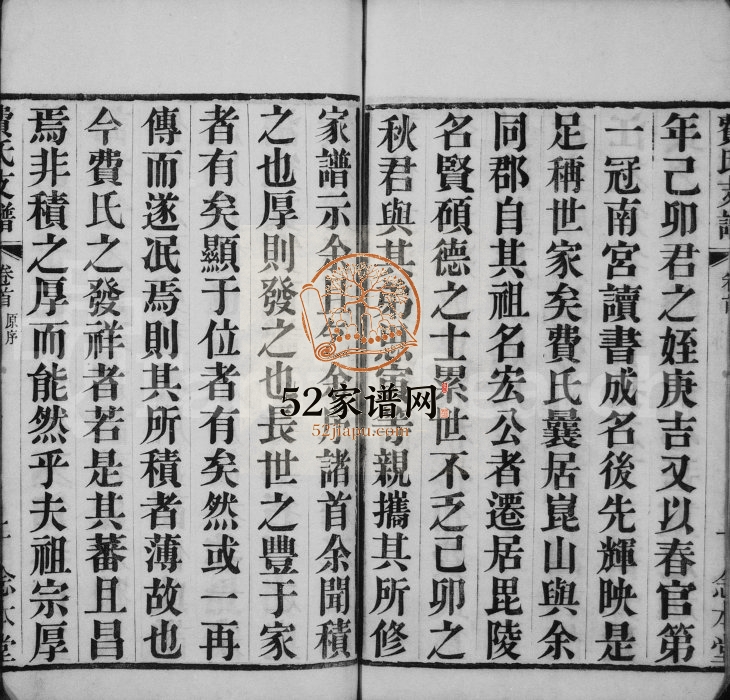 年己卯君之姪庚吉又以春官第
一冠南宮讀書成名後先輝映是
足稱世家矣費氏曩居崑山與余
同郡自其祖名宏公者遷居毘陵
名賢碩德之士累世不乏己卯之
秋君與其弟 親攜其所修
家譜示余且 余 諸首余聞積
之也厚則發之也長世之豐于家
者有矣顯于位者有矣然或一再
傳而遂泯焉則其所積者薄故也
今費氏之發祥者若是其蕃且昌
焉非積之厚而能然乎夫祖宗厚
費氏支譜
卷首
原序
念本堂
52家谱网
52jiapu.com